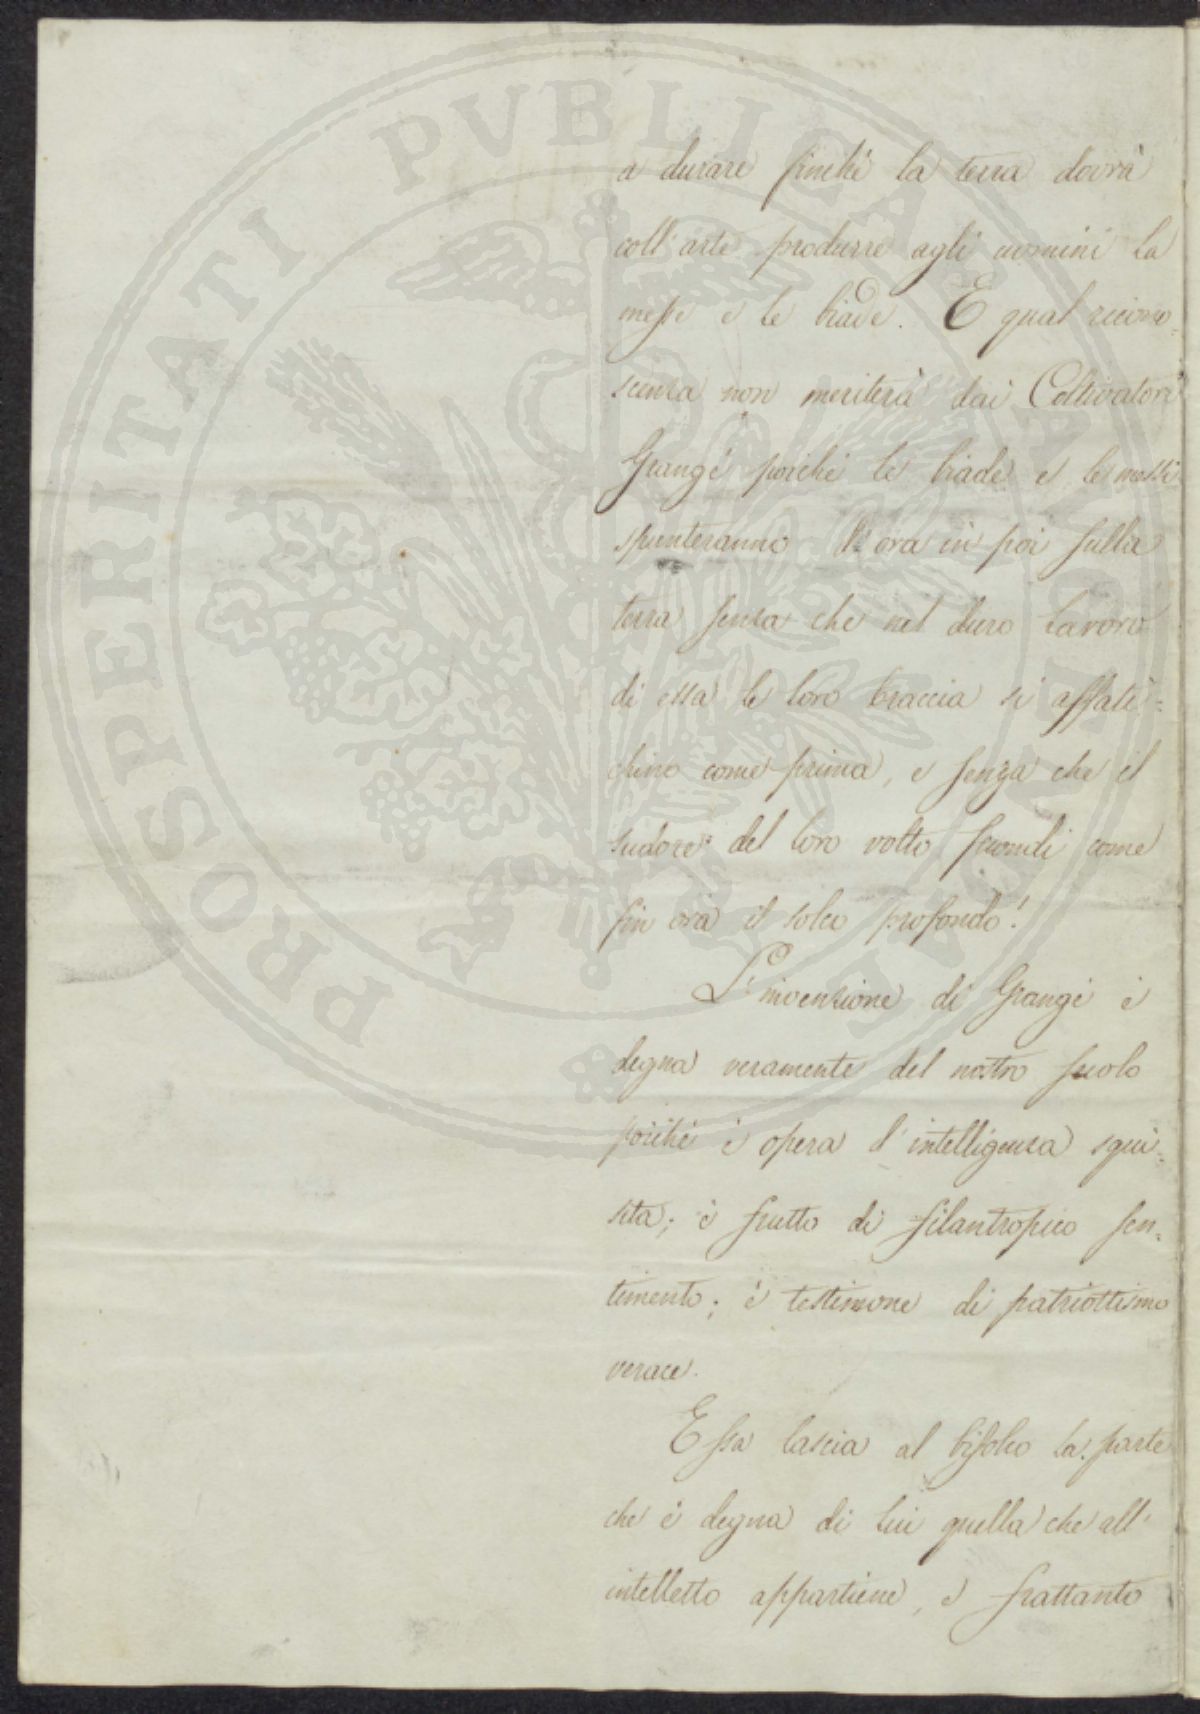 PROSPERITATI PVBLICAE
a durare finchè la terra dovrà
coll'arte produrre agli uomini la
messe e le biade. E qual ricono=
scenza non meriterà dai Coltivatori
Grangé poichè le biade e le messi
spunteranno d'ora in poi sulla
terra senza che nel duro lavoro
di essa le loro braccia si affati=
chino come prima, e senza che il
sudore del loro volto fecondi come
fin ora il solco profondo!
L'invenzione di Grangé è
degna veramente del nostro secolo
poichè è opera d'intelligenza squi=
sita; è frutto di filantropico sen=
timento; è testimone di patriottismo
verace.
Essa lascia al bifolco la parte
che è degna di lui quella che all'
intelletto appartiene, e frattanto